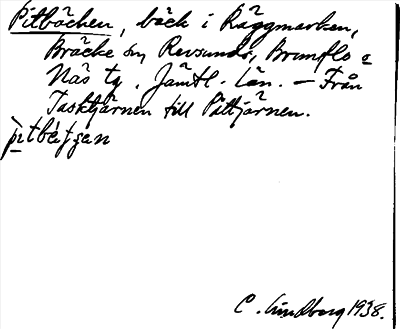 Pitbäcken, bäck i Räggmarken,
Bräcke sn, Revsunds, Brunflo o
Näs tg. Jämtl. län. – Från
Tasktjärnen till Pittjärnen.
pìtbä́tʃen
C. Lindberg 1938.